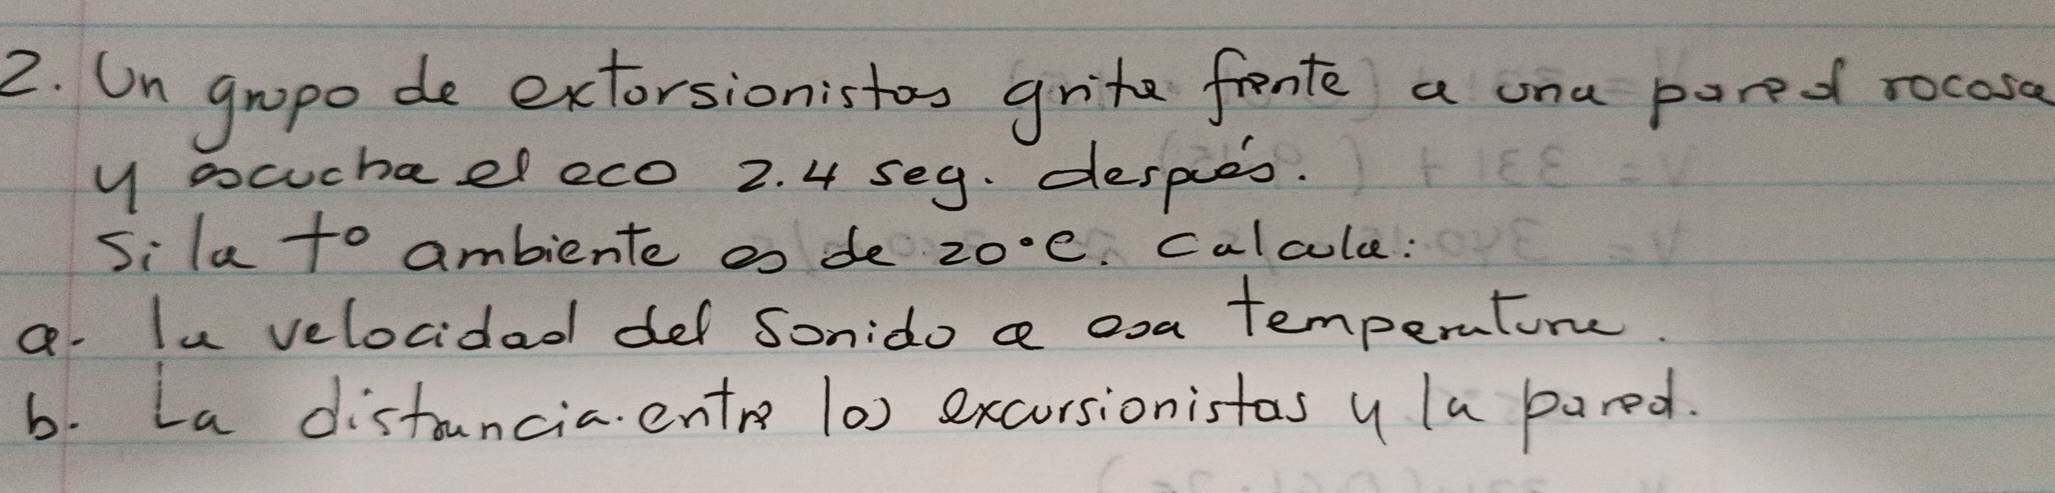 2. Un grupo de extorsionistas grita frente a una pared rocosa
y escucha el eco 2.4 seg. despúes.
Si la t° ambiente es de 20°C. Calcula:
a. la velocidad del sonido a esa temperatura.
b. La distancia entre los excursionistas y la pared.